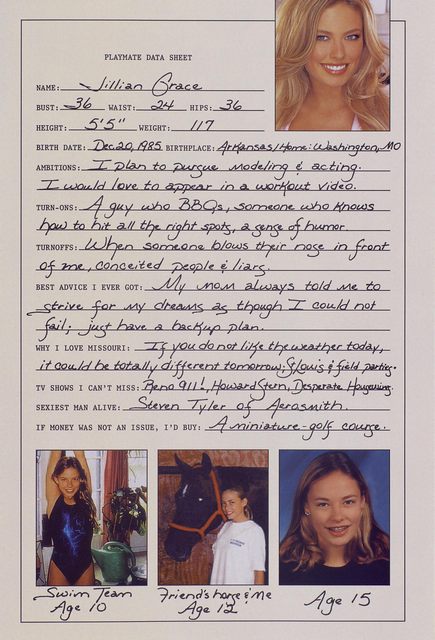 PLAYMATE DATA SHEET
NAME: Jillian Grace
BUST: 36 WAIST: 24 HIPS: 36
HEIGHT: 5'5" WEIGHT: 117
BIRTH DATE: Dec 20, 1985 BIRTHPLACE: Arkansas/Home: Washington, MO
AMBITIONS: I plan to pursue modeling & acting.
I would love to appear in a workout video.
TURN-ONS: A guy who BBQs, someone who knows
how to hit all the right spots, a sense of humor.
TURNOFFS: When someone blows their nose in front
of me, conceited people & liars.
BEST ADVICE I EVER GOT: My mom always told me to
strive for my dreams as though I could not
fail; just have a backup plan.
WHY I LOVE MISSOURI: If you do not like the weather today,
it could be totally different tomorrow; St. Louis & field parties.
TV SHOWS I CAN'T MISS: Reno 911!, Howard Stern, Desperate Housewives.
SEXIEST MAN ALIVE: Steven Tyler of Aerosmith.
IF MONEY WAS NOT AN ISSUE, I'D BUY: A miniature-golf course.
Swim Team
Age 10
Friend's horse & me
Age 12
Age 15